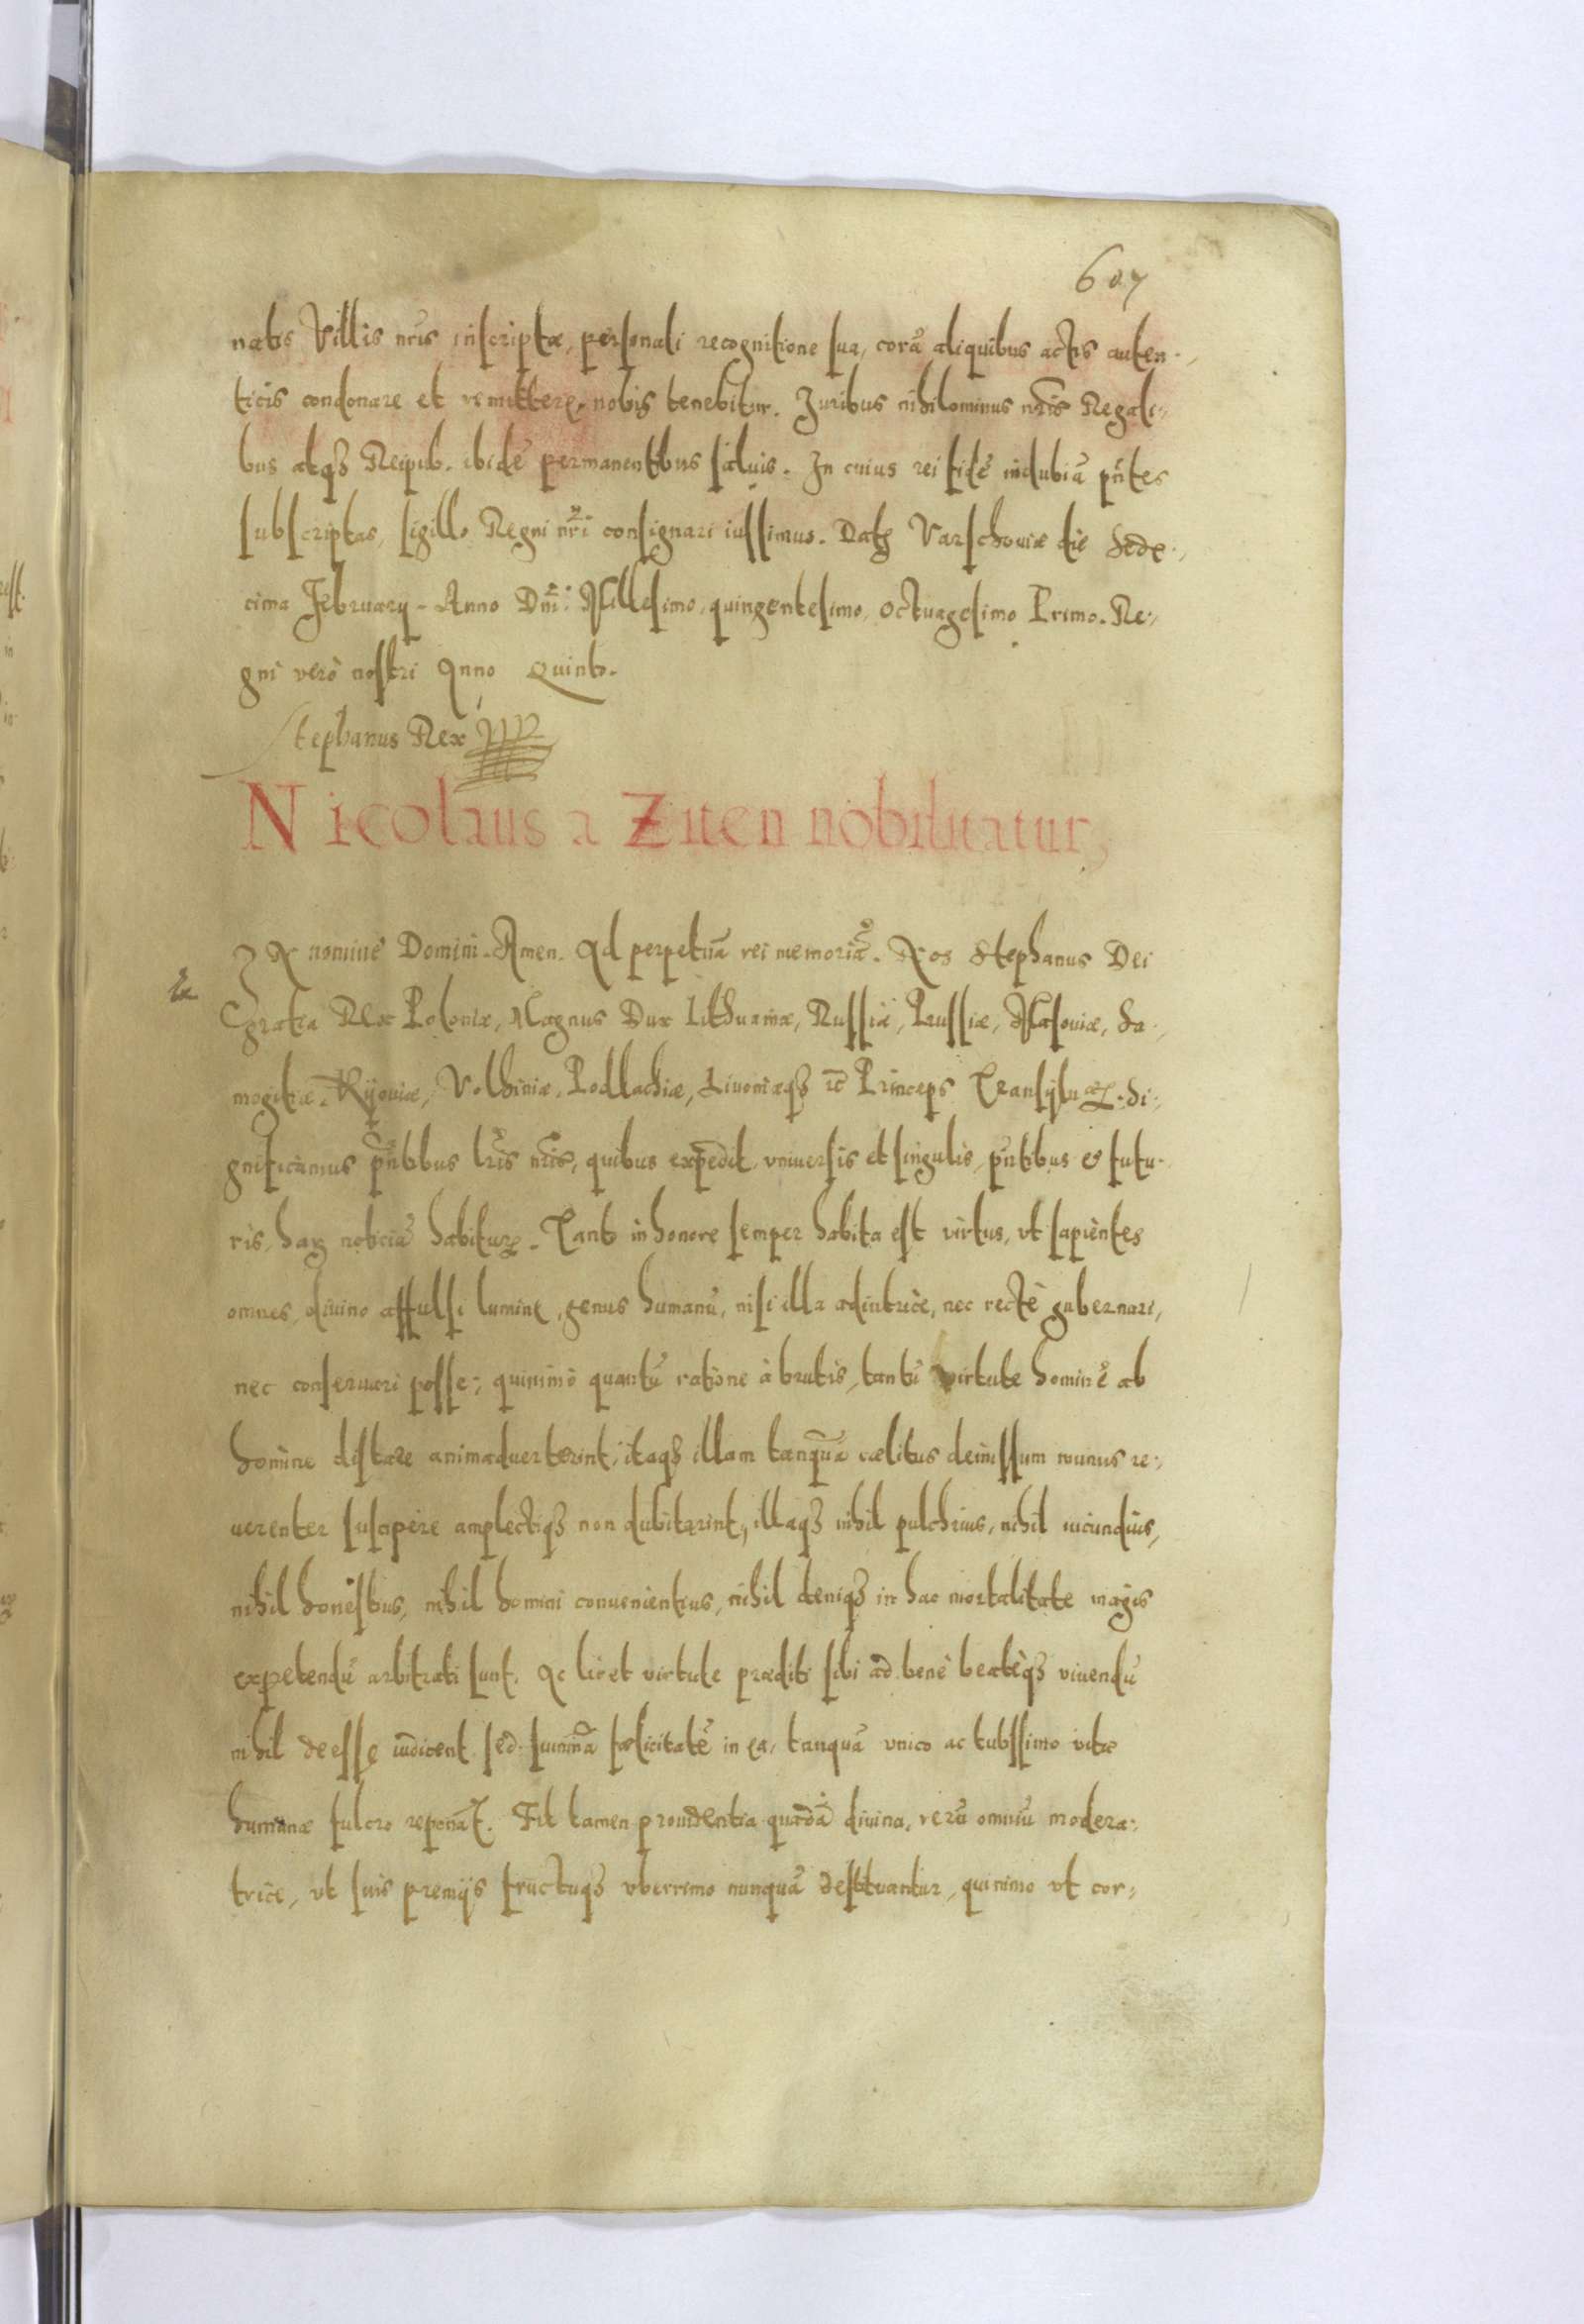 607
natis Villis nr̃is inscriptæ, personali recognitione sua, corã aliquibus actis auten-
ticis condonare et remittere, nobis tenebitur. Iuribus nihilominus nr̃is Regali-
bus atqꝫ Reipub. ibidẽ permanentibus saluis. In cuius rei fidẽ indubiã pñtes
subscriptas, sigillo Regni nr̃i consignari iussimus. Datꝫ Varschouiæ die Sede-
cima February. Anno Dñi: Millesimo, quingentesimo, octuagesimo Primo. Re-
gni verò nostri Anno Quinto.
Stephanus Rex
Nicolaus a Ziten nobilitatur,
IN nomine Domini. Amen. Ad perpetuã rei memoriã. Nos Stephanus Dei
gratia Rex Poloniæ, Magnus Dux Lithuaniæ, Russiæ, Prussiæ, Masouiæ, Sa-
mogitiæ, Kijouiæ, Volhiniæ, Podlachiæ, Liuoniæqꝫ ꝛc̃ Princeps Transylu. Si-
gnificamus pñtibus lr̃is nr̃is, quibus expedit, vniuersis et singulis, pñtibus & futu-
ris, harꝫ noticiã habiturꝫ. Tanto in honore semper habita est virtus, vt sapientes
omnes, diuino affulsi lumine, genus humanũ, nisi illa adiutrice, nec rectè gubernari,
nec conseruari posse; quinimò quantũ ratione à brutis, tantũ virtute hominẽ ab
homine distare animaduerterint, itaqꝫ illam tanquã cælitus demissum munus re-
uerenter suscipere amplectiqꝫ non dubitarint, illaqꝫ nihil pulchrius, nihil iucundius,
nihil honestius, nihil homini conuenientius, nihil deniqꝫ in hac mortalitate magis
expetendũ arbitrati sunt. Ac licet virtute præditi sibi ad benè beatèqꝫ viuendũ
nihil deesse iudicent, sed summã fælicitatẽ in ea, tanquã vnico ac tutissimo vitæ
humanæ fulcro reponãt. Fit tamen prouidentia quadã diuina, rerũ omniũ modera-
trice, vt suis premijs fructuqꝫ vberrimo nunquã destituantur, quinimo vt cor-